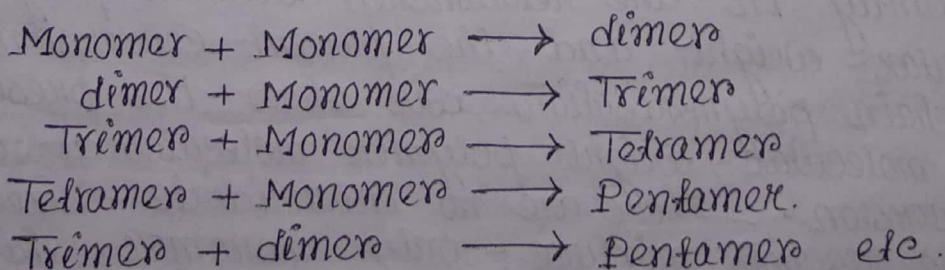 Monomer + Monomer ⟶ dimer
dimer + Monomer ⟶ Trimer
Trimer + Monomer ⟶ Tetramer
Tetramer + Monomer ⟶ Pentamer.
Trimer + dimer ⟶ Pentamer etc.